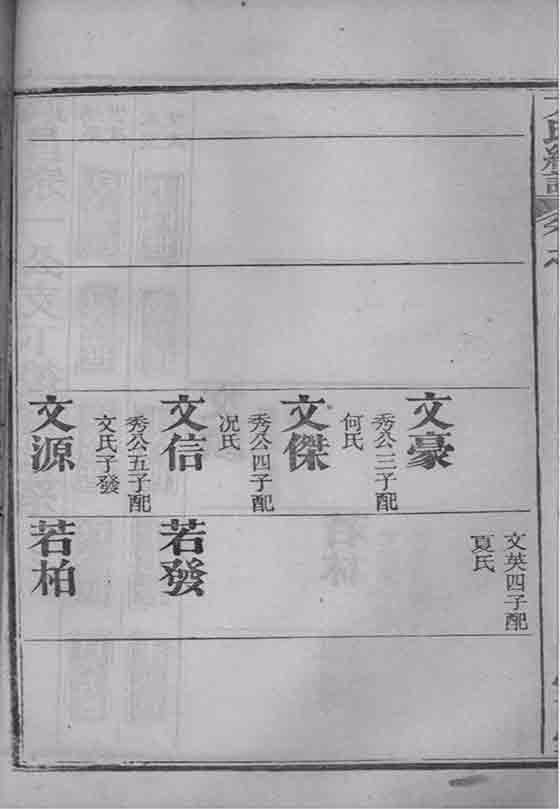 文英四子配
夏氏
文豪
秀公三子配
何氏
文傑
秀公四子配
况氏
文信
秀公五子配
文氏子發
文源
若發
若柏